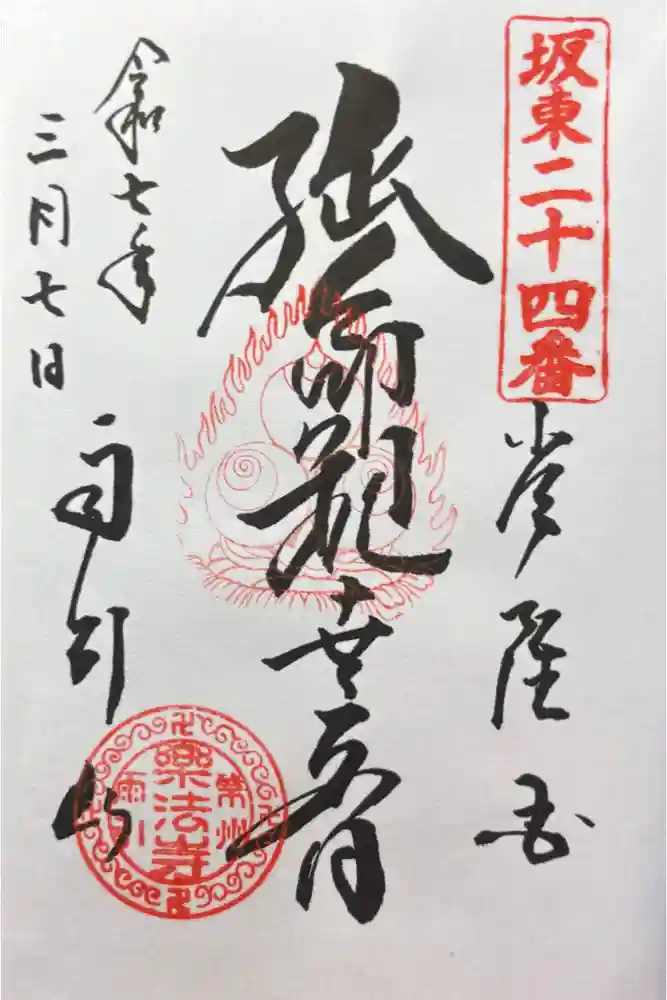 坂東二十四番
常陸国
延命観世音
令和七年
三月七日
雨引山
常州
樂法寺
雨引